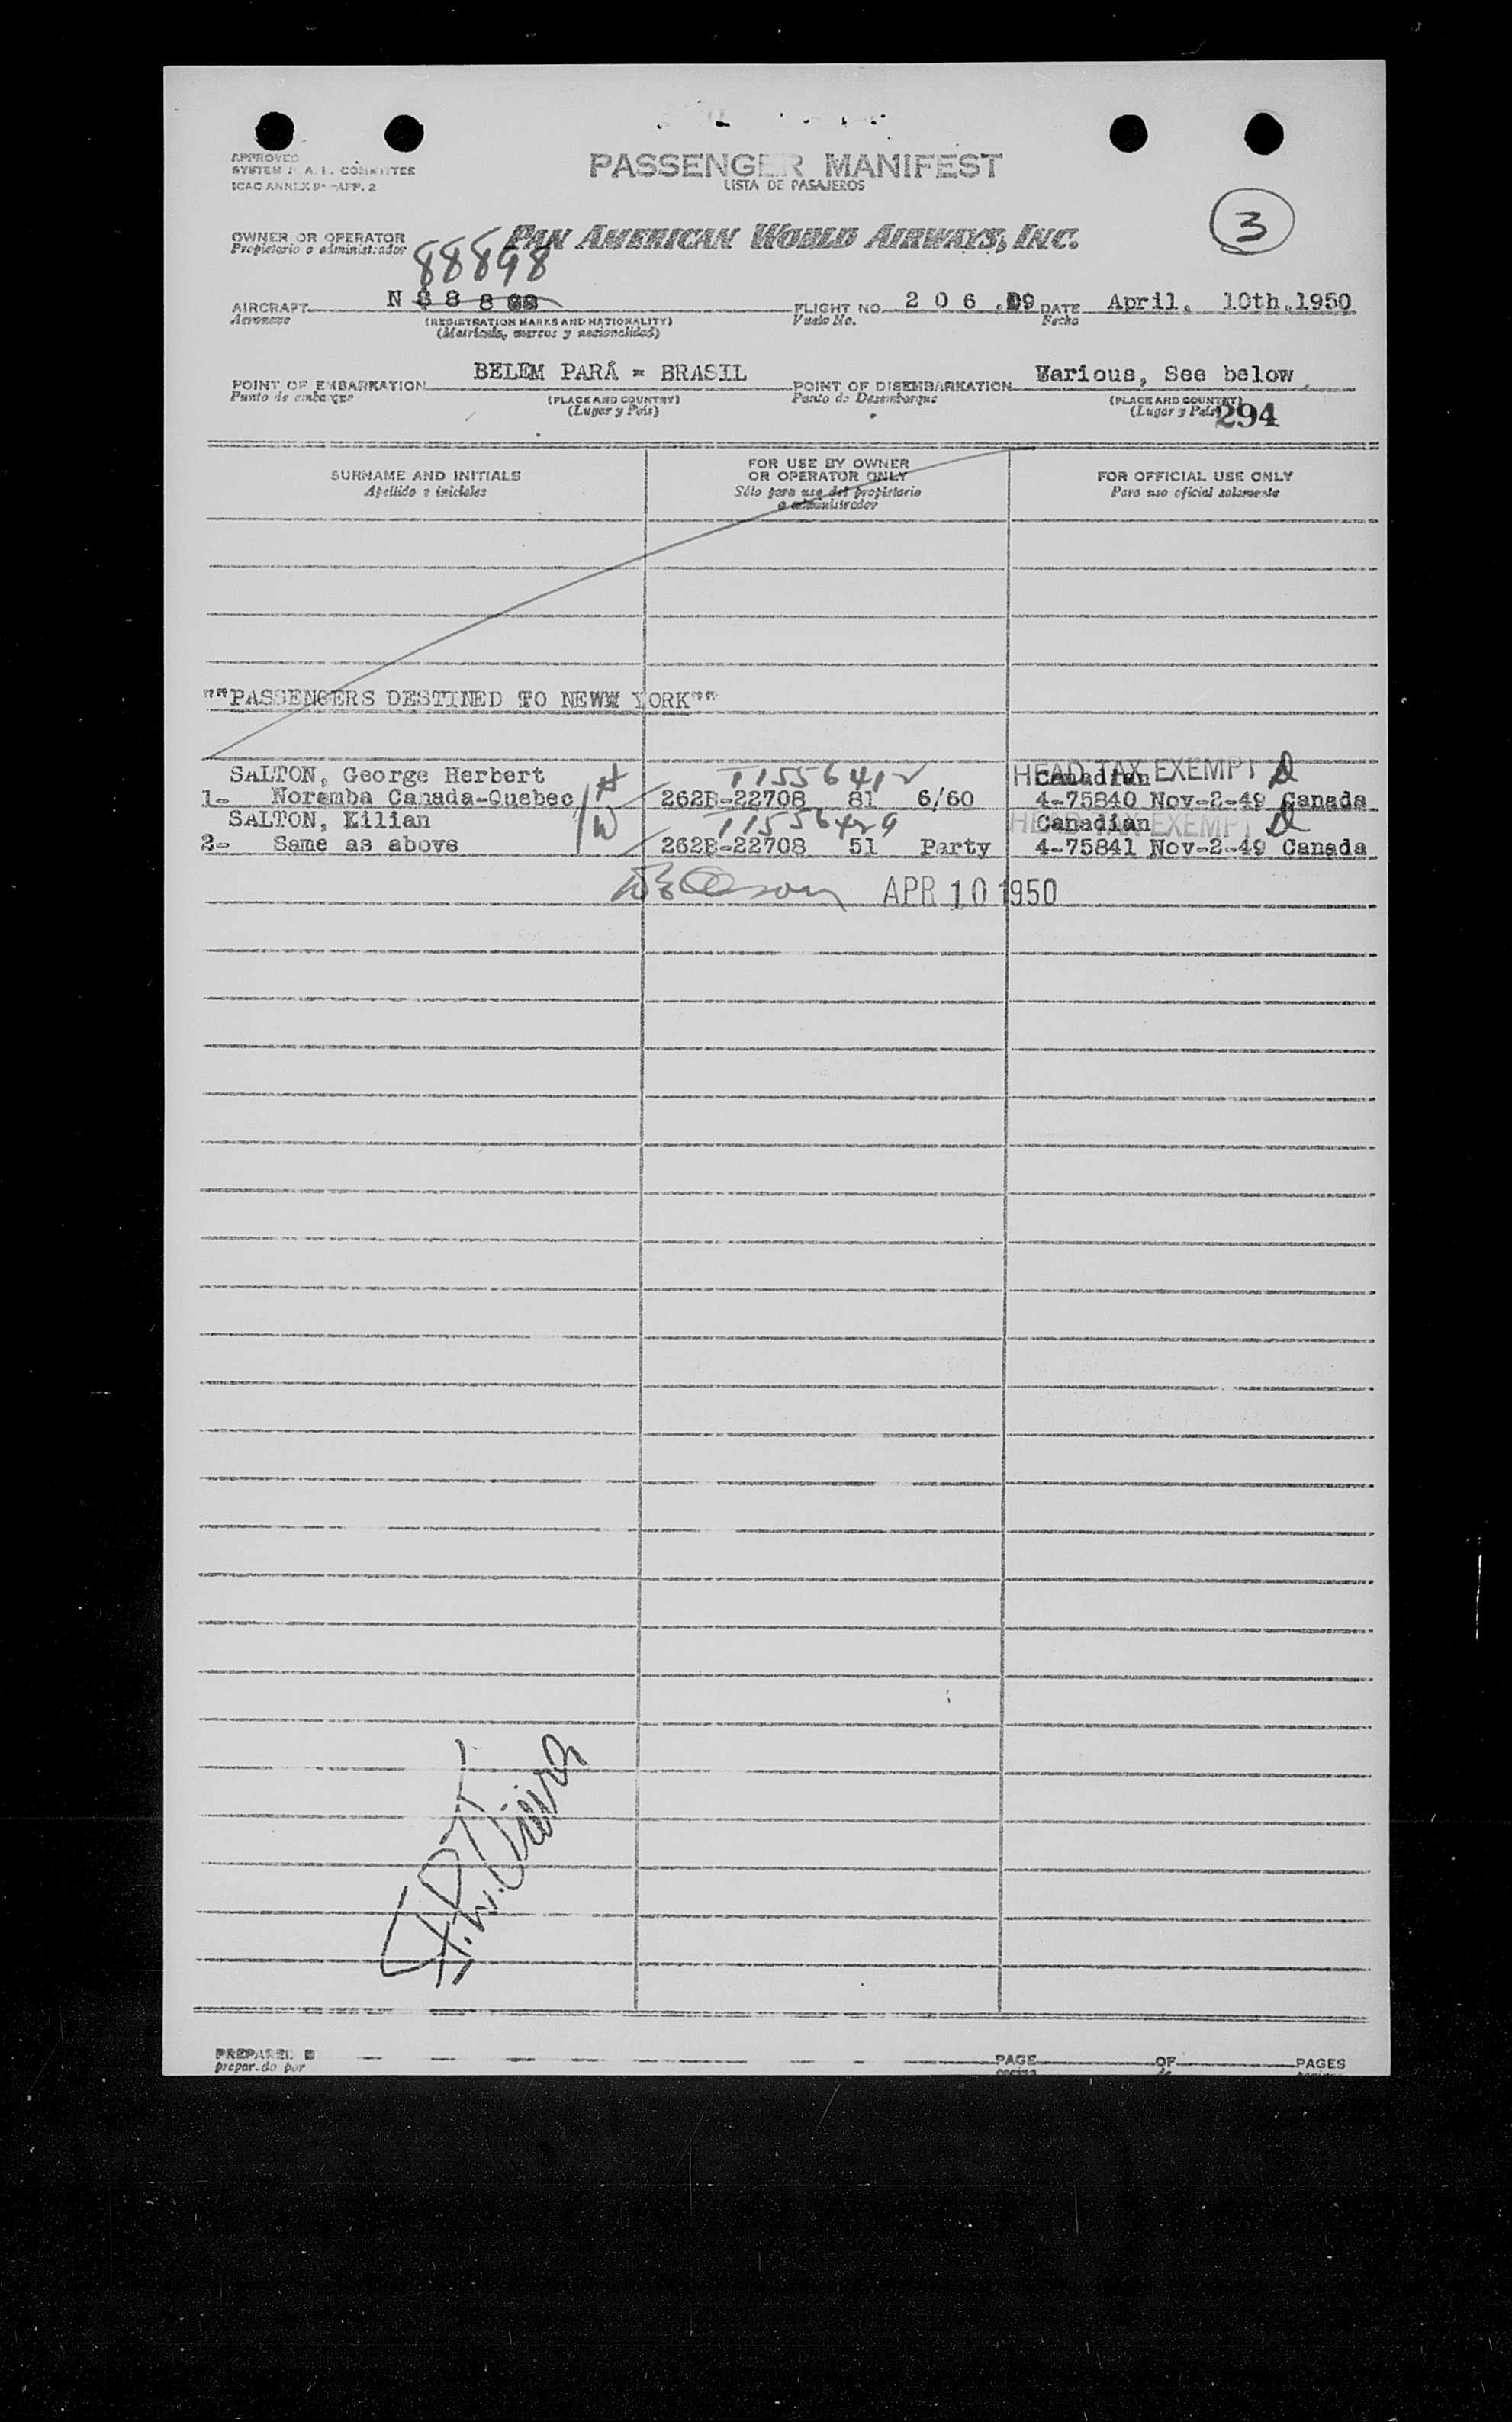 APPROVED
SYSTEM F. A. L. COMMITTEE
ICAO ANNEX 9- APP. 2
PASSENGER MANIFEST
LISTA DE PASAJEROS
3
OWNER OR OPERATOR
Propietario o administrador
PAN AMERICAN WORLD AIRWAYS, INC.
88898
AIRCRAFT N 8 8 8 98 FLIGHT NO. 2 0 6 .D9 DATE April, 10th,1950
Aeronave (REGISTRATION MARKS AND NATIONALITY) Vuelo No. Fecha
(Matrícula, marcas y nacionalidad)
POINT OF EMBARKATION BELEM PARÁ = BRASIL POINT OF DISEMBARKATION Warious, See below
Punto de embarque (PLACE AND COUNTRY) Punto de Desembarque (PLACE AND COUNTRY)
(Lugar y País) (Lugar y País) 294
SURNAME AND INITIALS FOR USE BY OWNER OR OPERATOR ONLY FOR OFFICIAL USE ONLY
Apellido e iniciales Sólo para uso del propietario o administrador Para uso oficial solamente
""PASSENGERS DESTINED TO NEWW YORK""
SALTON, George Herbert H T1556412 HEAD TAX EXEMPT Canadian
1- Noremba Canada-Quebec 262B-22708 81 6/60 4-75840 Nov-2-49 Canada
SALTON, Lilian W T1556429 HEAD TAX EXEMPT Canadian
2- Same as above 262B-22708 51 Party 4-75841 Nov-2-49 Canada
APR 10 1950
PREPARED B PAGE OF PAGES
preparado por